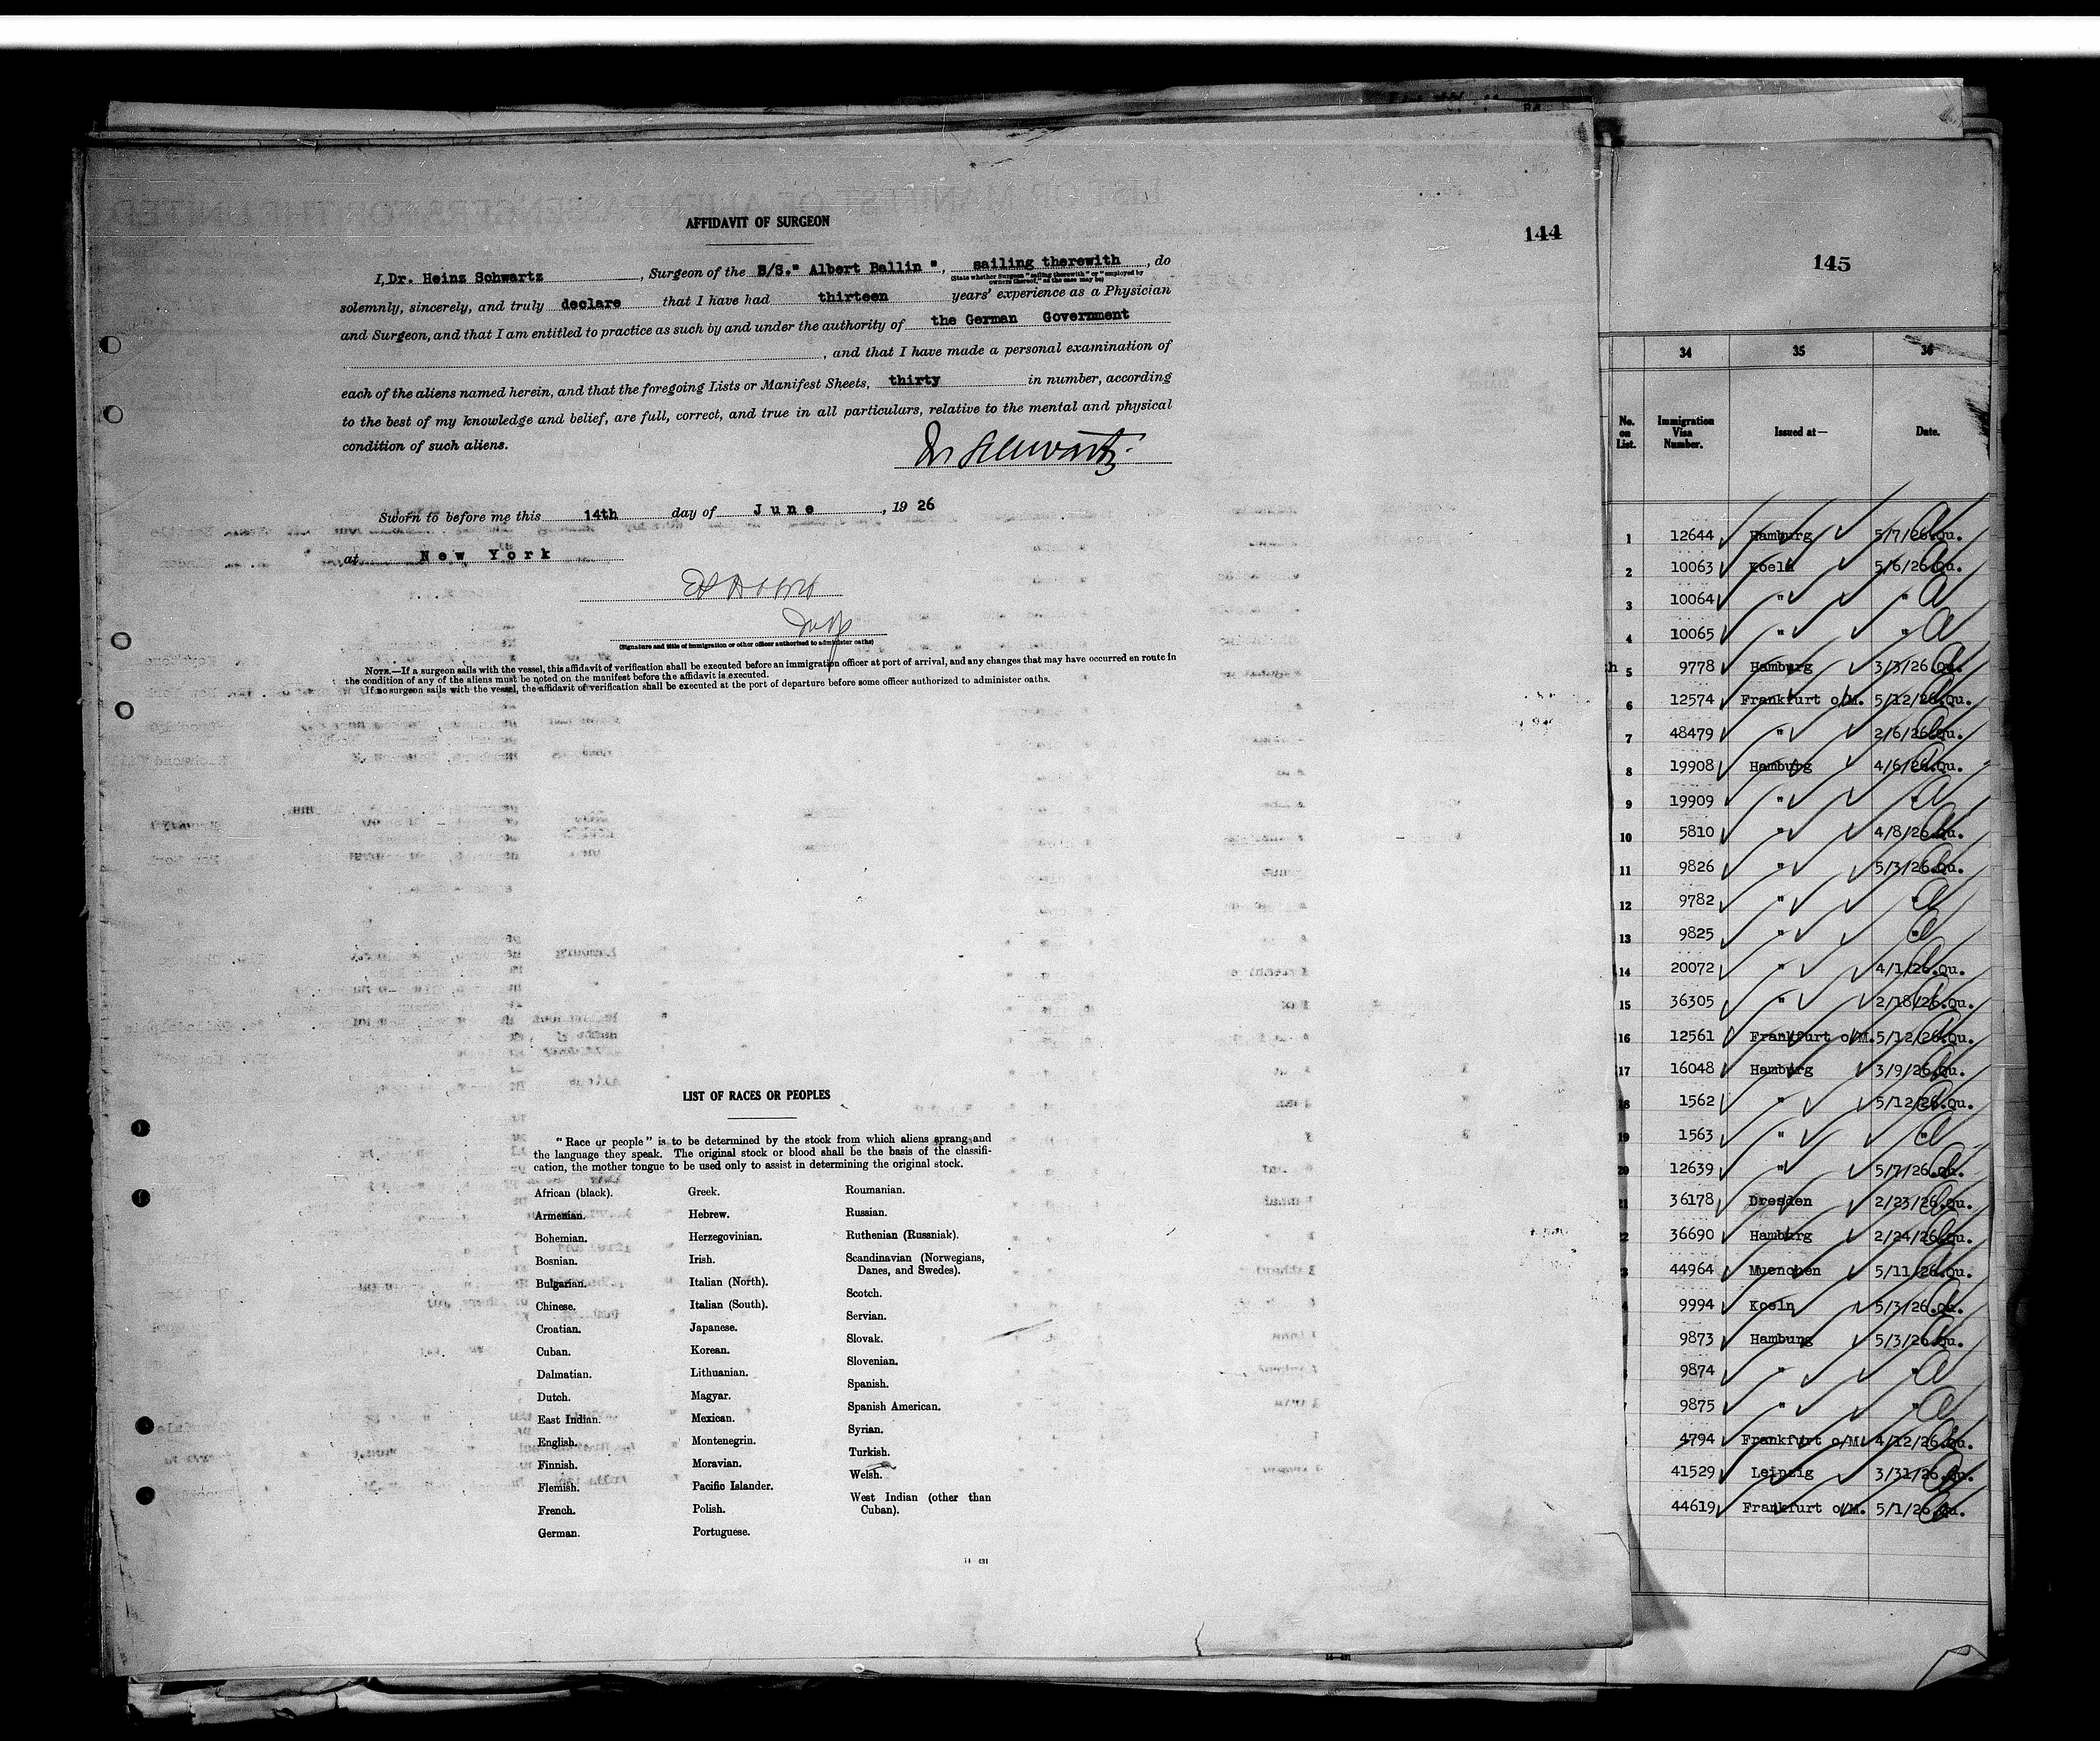 AFFIDAVIT OF SURGEON
144
I, Dr. Heinz Schwartz, Surgeon of the S/S." Albert Ballin ", sailing therewith, do
(State whether Surgeon "sailing therewith" or "employed by
owners thereof," as the case may be)
solemnly, sincerely, and truly declare that I have had thirteen years' experience as a Physician
and Surgeon, and that I am entitled to practice as such by and under the authority of the German Government
, and that I have made a personal examination of
each of the aliens named herein, and that the foregoing Lists or Manifest Sheets, thirty in number, according
to the best of my knowledge and belief, are full, correct, and true in all particulars, relative to the mental and physical
condition of such aliens.
Dr Schwartz.
Sworn to before me this 14th day of June, 1926
at New York
(Signature and title of immigration or other officer authorized to administer oaths)
NOTE.—If a surgeon sails with the vessel, this affidavit of verification shall be executed before an immigration officer at port of arrival, and any changes that may have occurred en route in
the condition of any of the aliens must be noted on the manifest before the affidavit is executed.
If no surgeon sails with the vessel, the affidavit of verification shall be executed at the port of departure before some officer authorized to administer oaths.
LIST OF RACES OR PEOPLES
"Race or people" is to be determined by the stock from which aliens sprang and
the language they speak. The original stock or blood shall be the basis of the classifi-
cation, the mother tongue to be used only to assist in determining the original stock.
African (black).
Armenian.
Bohemian.
Bosnian.
Bulgarian.
Chinese.
Croatian.
Cuban.
Dalmatian.
Dutch.
East Indian.
English.
Finnish.
Flemish.
French.
German.
Greek.
Hebrew.
Herzegovinian.
Irish.
Italian (North).
Italian (South).
Japanese.
Korean.
Lithuanian.
Magyar.
Mexican.
Montenegrin.
Moravian.
Pacific Islander.
Polish.
Portuguese.
Roumanian.
Russian.
Ruthenian (Russniak).
Scandinavian (Norwegians,
Danes, and Swedes).
Scotch.
Servian.
Slovak.
Slovenian.
Spanish.
Spanish American.
Syrian.
Turkish.
Welsh.
West Indian (other than
Cuban).
145
34 35 36
No. on List. Immigration Visa Number. Issued at— Date.
1 12644 Hamburg 5/7/26.Qu.
2 10063 Koeln 5/6/26.Qu.
3 10064 " "
4 10065 " "
5 9778 Hamburg 3/3/26.Qu.
6 12574 Frankfurt o/M. 5/12/26.Qu.
7 48479 " 2/6/26.Qu.
8 19908 Hamburg 4/6/26.Qu.
9 19909 " "
10 5810 " 4/8/26.Qu.
11 9826 " 5/3/26.Qu.
12 9782 " "
13 9825 " "
14 20072 " 4/1/26.Qu.
15 36305 " 2/18/26.Qu.
16 12561 Frankfurt o/M. 5/12/26.Qu.
17 16048 Hamburg 3/9/26.Qu.
18 1562 " 5/12/26.Qu.
19 1563 " "
20 12639 " 5/7/26.Qu.
21 36178 Dresden 2/23/26.Qu.
2 36690 Hamburg 2/24/26.Qu.
3 44964 Muenchen 5/11/26.Qu.
9994 Koeln 5/3/26.Qu.
9873 Hamburg 5/3/26.Qu.
9874 " "
9875 " "
4794 Frankfurt o/M. 4/12/26.Qu.
41529 Leipzig 3/31/26.Qu.
44619 Frankfurt o/M. 5/1/26.Qu.